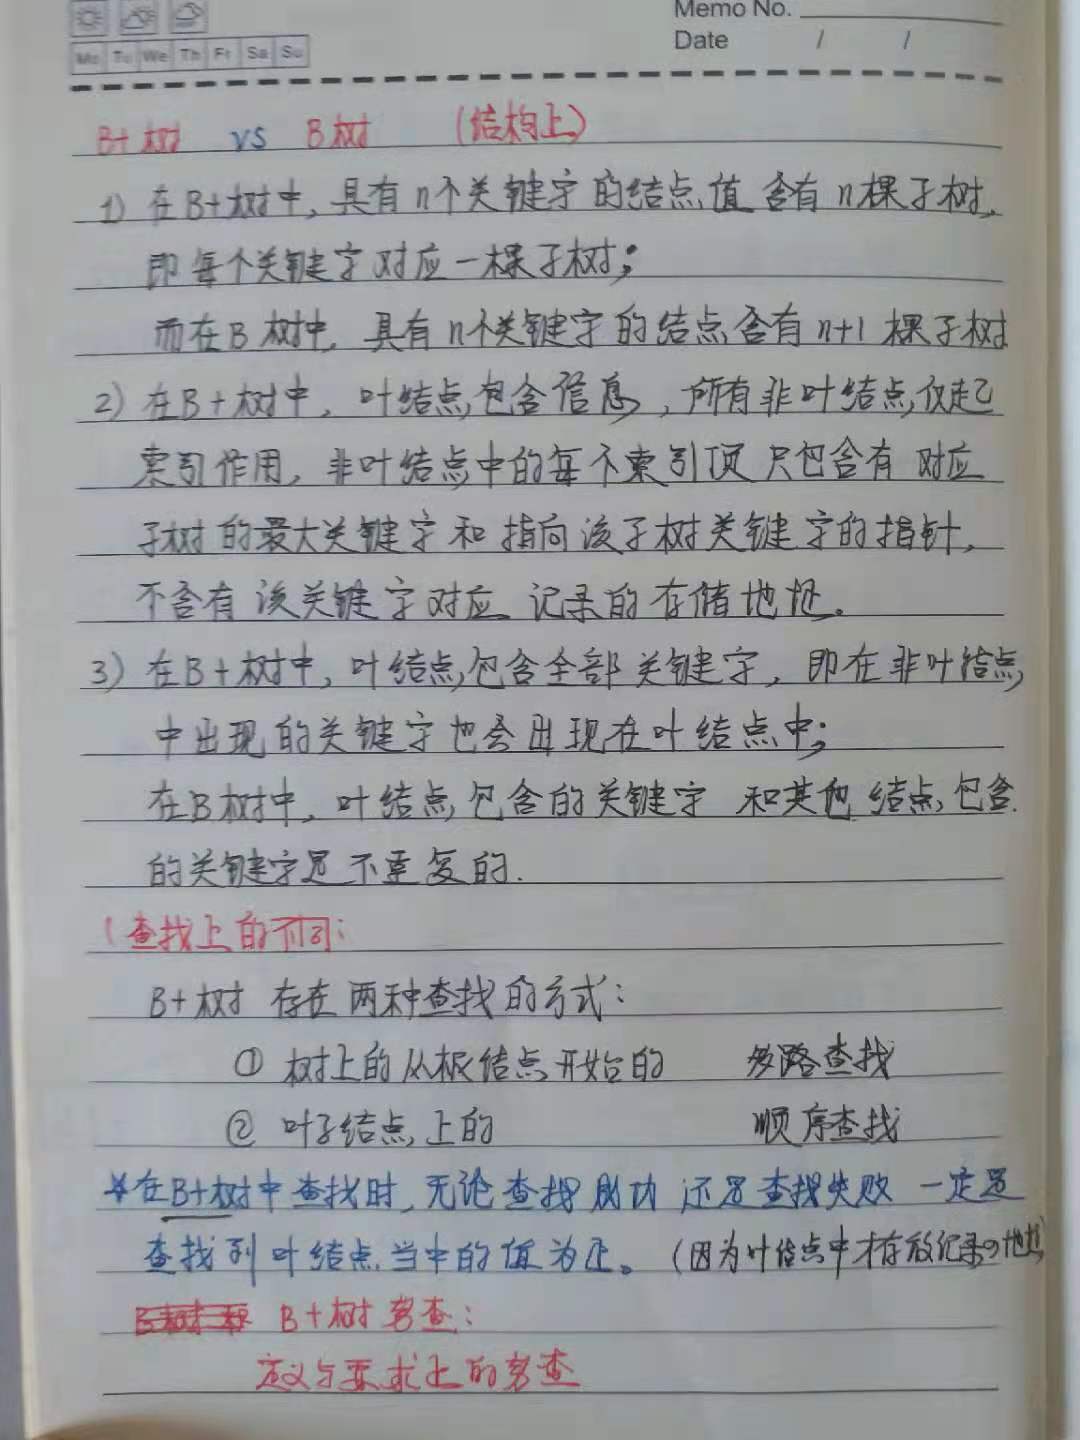 Memo No.
Date / /
Mo Tu We Th Fr Sa Su
B+树 vs B树 (结构上)
1) 在B+树中, 具有n个关键字的结点值含有n棵子树,
即每个关键字对应一棵子树;
而在B树中, 具有n个关键字的结点含有n+1棵子树
2) 在B+树中, 叶结点包含信息, 所有非叶结点仅起
索引作用, 非叶结点中的每个索引项只包含有对应
子树的最大关键字和指向该子树关键字的指针,
不含有该关键字对应记录的存储地址。
3) 在B+树中, 叶结点包含全部关键字, 即在非叶结点
中出现的关键字也会出现在叶结点中;
在B树中, 叶结点包含的关键字和其他结点包含
的关键字是不重复的.
(查找上的不同:
B+树 存在两种查找的方式:
① 树上的从根结点开始的 多路查找
② 叶子结点上的 顺序查找
*在B+树中查找时, 无论查找成功还是查找失败一定是
查找到叶结点当中的值为止。(因为叶结点中才存放记录的地址)
B+树考查:
定义与要求上的考查